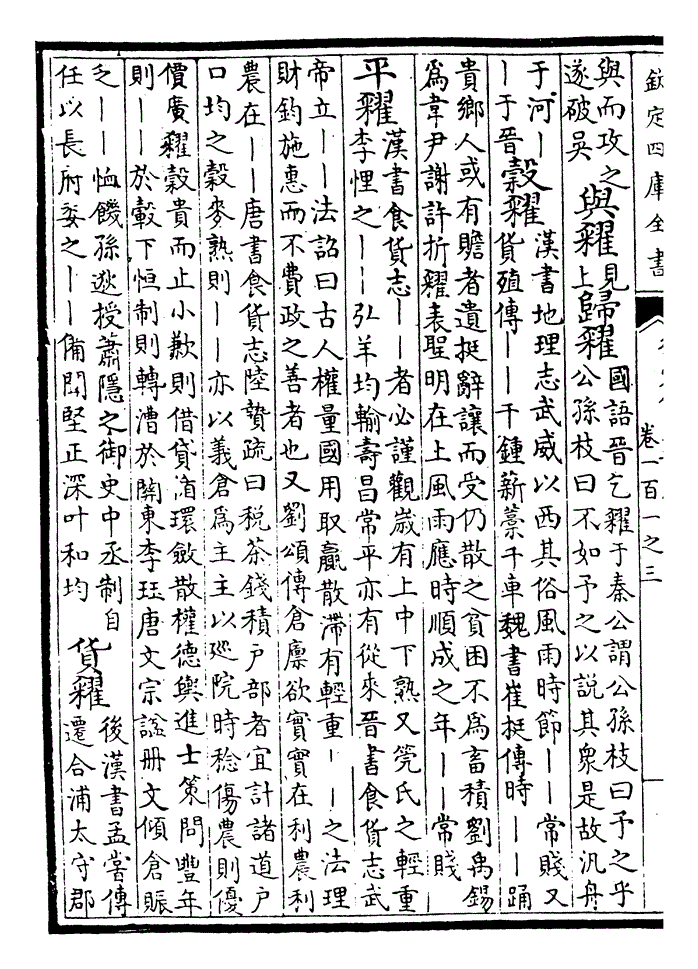 欽定四庫全書
卷一百一之三
與而攻之
遂破吳
與糴
見
上
歸糴
國語晉乞糴于秦公謂公孫枝曰予之乎
公孫枝曰不如予之以說其衆是故汎舟
于河—
—于晉
穀糴
漢書地理志武威以西其俗風雨時節——常賤又
貨殖傳——千鍾薪藁千車魏書崔挺傳時——踊
貴鄉人或有贍者遺挺辭讓而受仍散之貧困不為畜積劉禹錫
為韋尹謝許折糴表聖明在上風雨應時順成之年——常賤
平糴
漢書食貨志——者必謹觀歲有上中下熟又筦氏之輕重
李悝之——弘羊均輸壽昌常平亦有從來晉書食貨志武
帝立——法詔曰古人權量國用取贏散滯有輕重——之法理
財鈞施惠而不費政之善者也又劉頌傳倉廩欲實實在利農利
農在——唐書食貨志陸贄疏曰税茶錢積户部者宜計諸道户
口均之穀麥熟則——亦以義倉為主主以廵院時稔傷農則優
價廣糴穀貴而止小歉則借貸循環斂散權德輿進士策問豐年
則——於轂下恒制則轉漕於關東李珏唐文宗諡册文傾倉賑
乏——恤饑孫逖授蕭隱之御史中丞制自
任以長府委之——備聞堅正深叶和均
貨糴
後漢書孟嘗傳
遷合浦太守郡